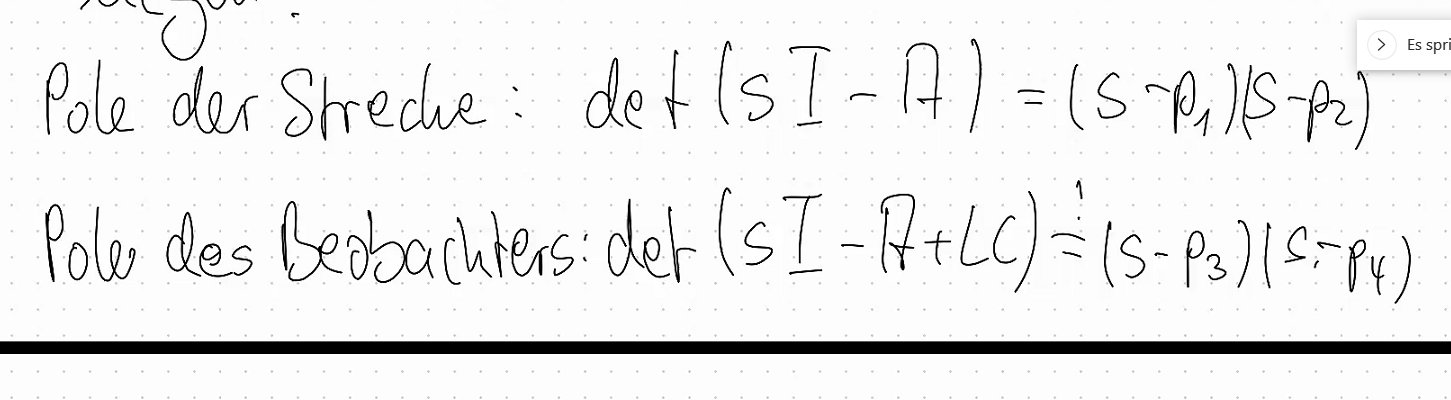 Pole der Strecke: det (sI - A) = (s-p₁)(s-p₂)
Es spri
Pole des Beobachters: det (sI - A+LC) =! (s-p₃)(s-p₄)